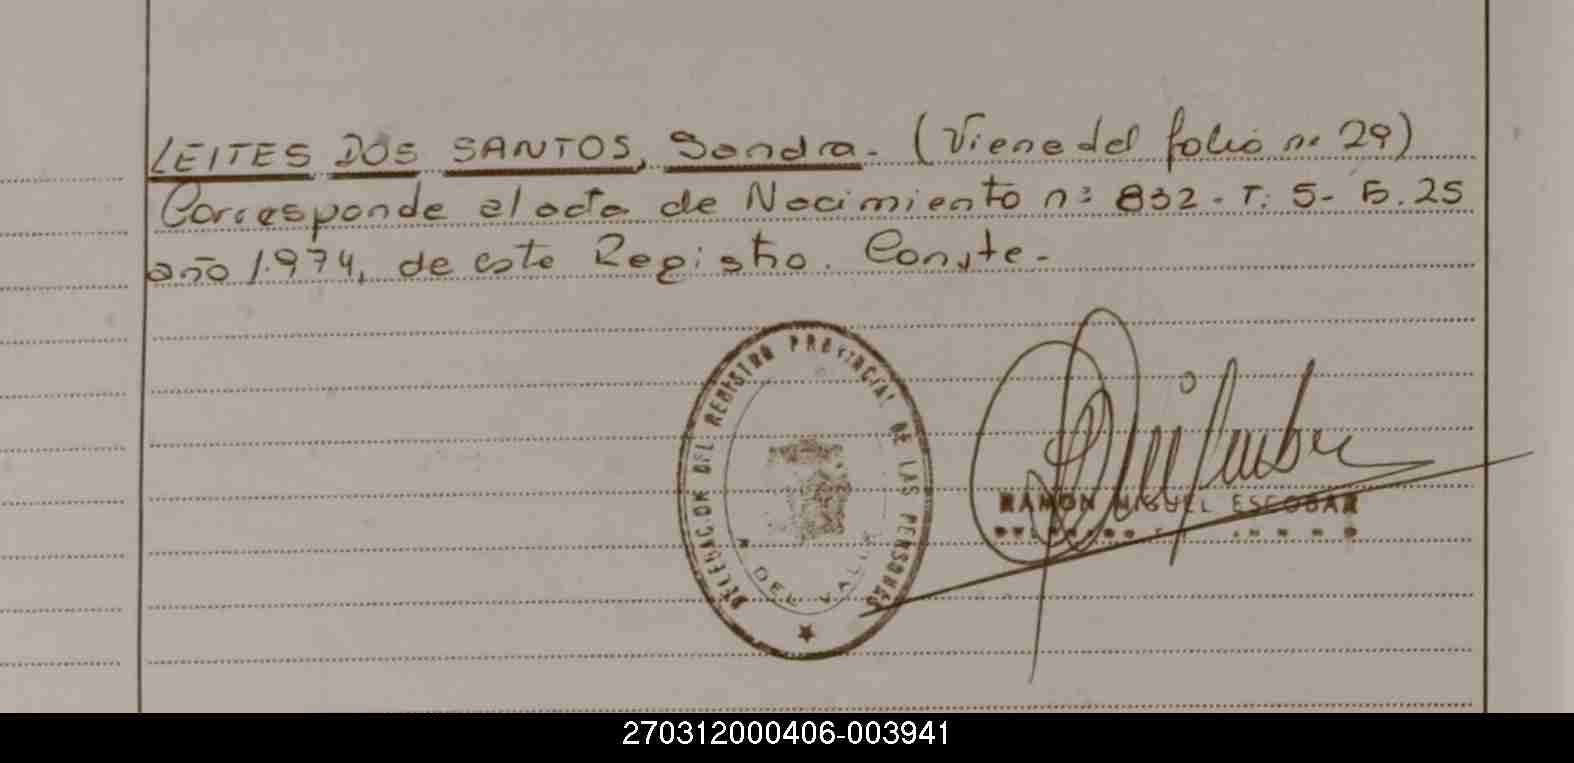 LEITES DOS SANTOS, Sandra. (Viene del folio nº 29)
Corresponde al acta de Nacimiento nº: 832 - T: 5 - F. 25
año 1.974, de este Registro. Conste.-
DELEGACION DEL REGISTRO PROVINCIAL DE LAS PERSONAS
DEL VALLE
RAMON MIGUEL ESCOBAR
270312000406-003941